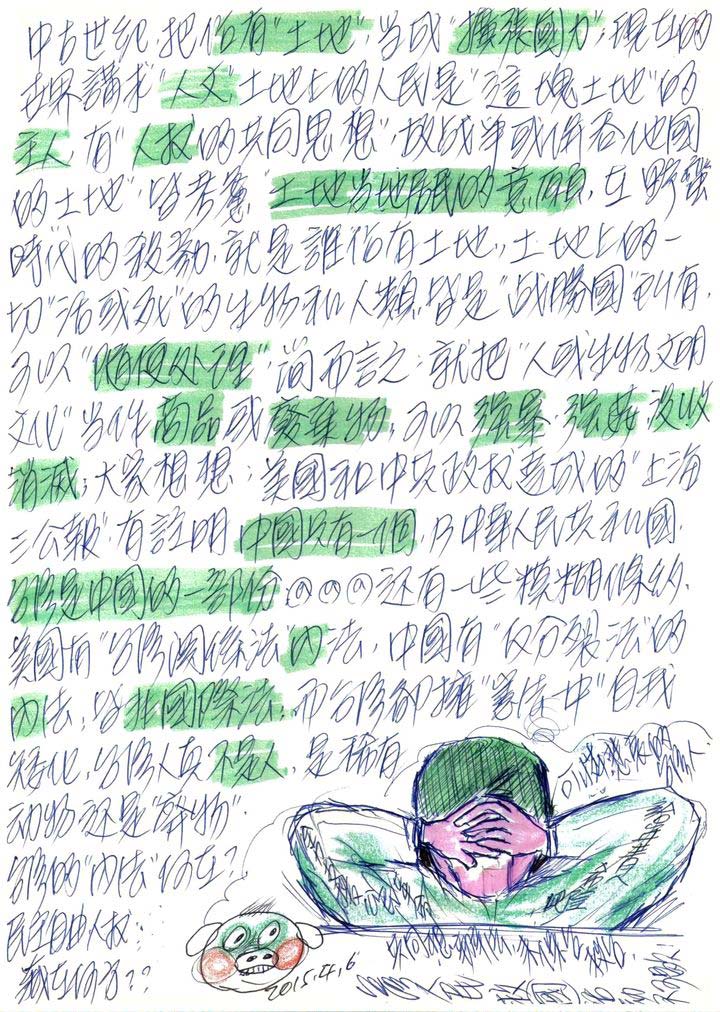 中古世紀把佔有"土地",當成"擴張國力";現在的
世界講求"人文"土地上的人民是"這塊土地"的
主人 有"人权的共同思想",故战争或併吞他國
的土地"皆考慮"土地当地居民的意願,在野蠻
時代的殺勠,就是誰佔有土地,,土地上的一
切"活或死"的生物和人類,皆是"战勝國"所有,
可以"隨便处理"簡而言之:就把"人或生物文明
文化"当作商品或廢棄物,可以強暴·強姦·沒收
消滅;大家想想:美國和中共政权達成的"上海
三公報"有註明 中國只有一個,乃中華人民共和國,
台灣是中國的一部份 還有一些模糊條約,
美國有"台灣関係法"內法,中國有"反分裂法"的
內法,皆非國際法,而台灣卻擁"憲法一中"自我
矮化,台灣人真不是人,是稀有
动物还是"弃物"
台灣的"內法"何在?
民主自由人权:
我在何方??
2015.4.6